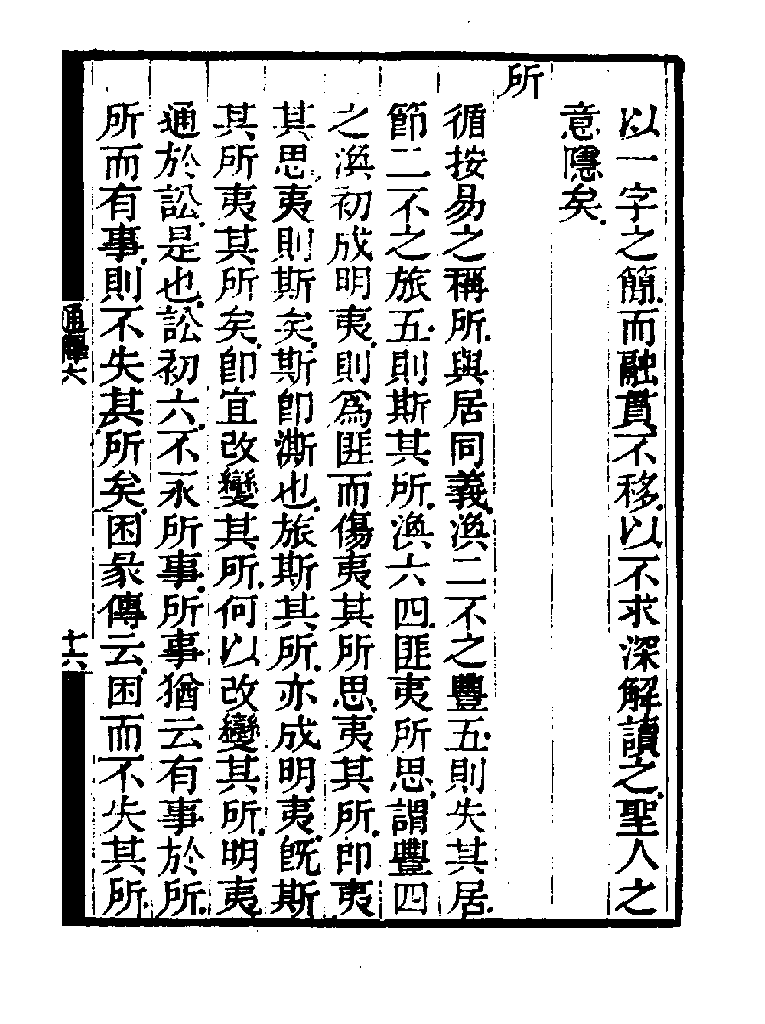 以一字之簡而融貫不移以不求深解讀之聖人之
意隱矣
所
循按易之稱所與居同義渙二不之豐五則失其居
節二不之旅五則斯其所渙六四匪夷所思謂豐四
之渙初成明夷則爲匪而傷夷其所思夷其所卽夷
其思夷則斯矣斯卽澌也旅斯其所亦成明夷旣斯
其所夷其所矣卽宜改變其所何以改變其所明夷
通於訟是也訟初六不永所事所事猶云有事於所
所而有事則不失其所矣困彖傳云困而不失其所
通釋六
十六